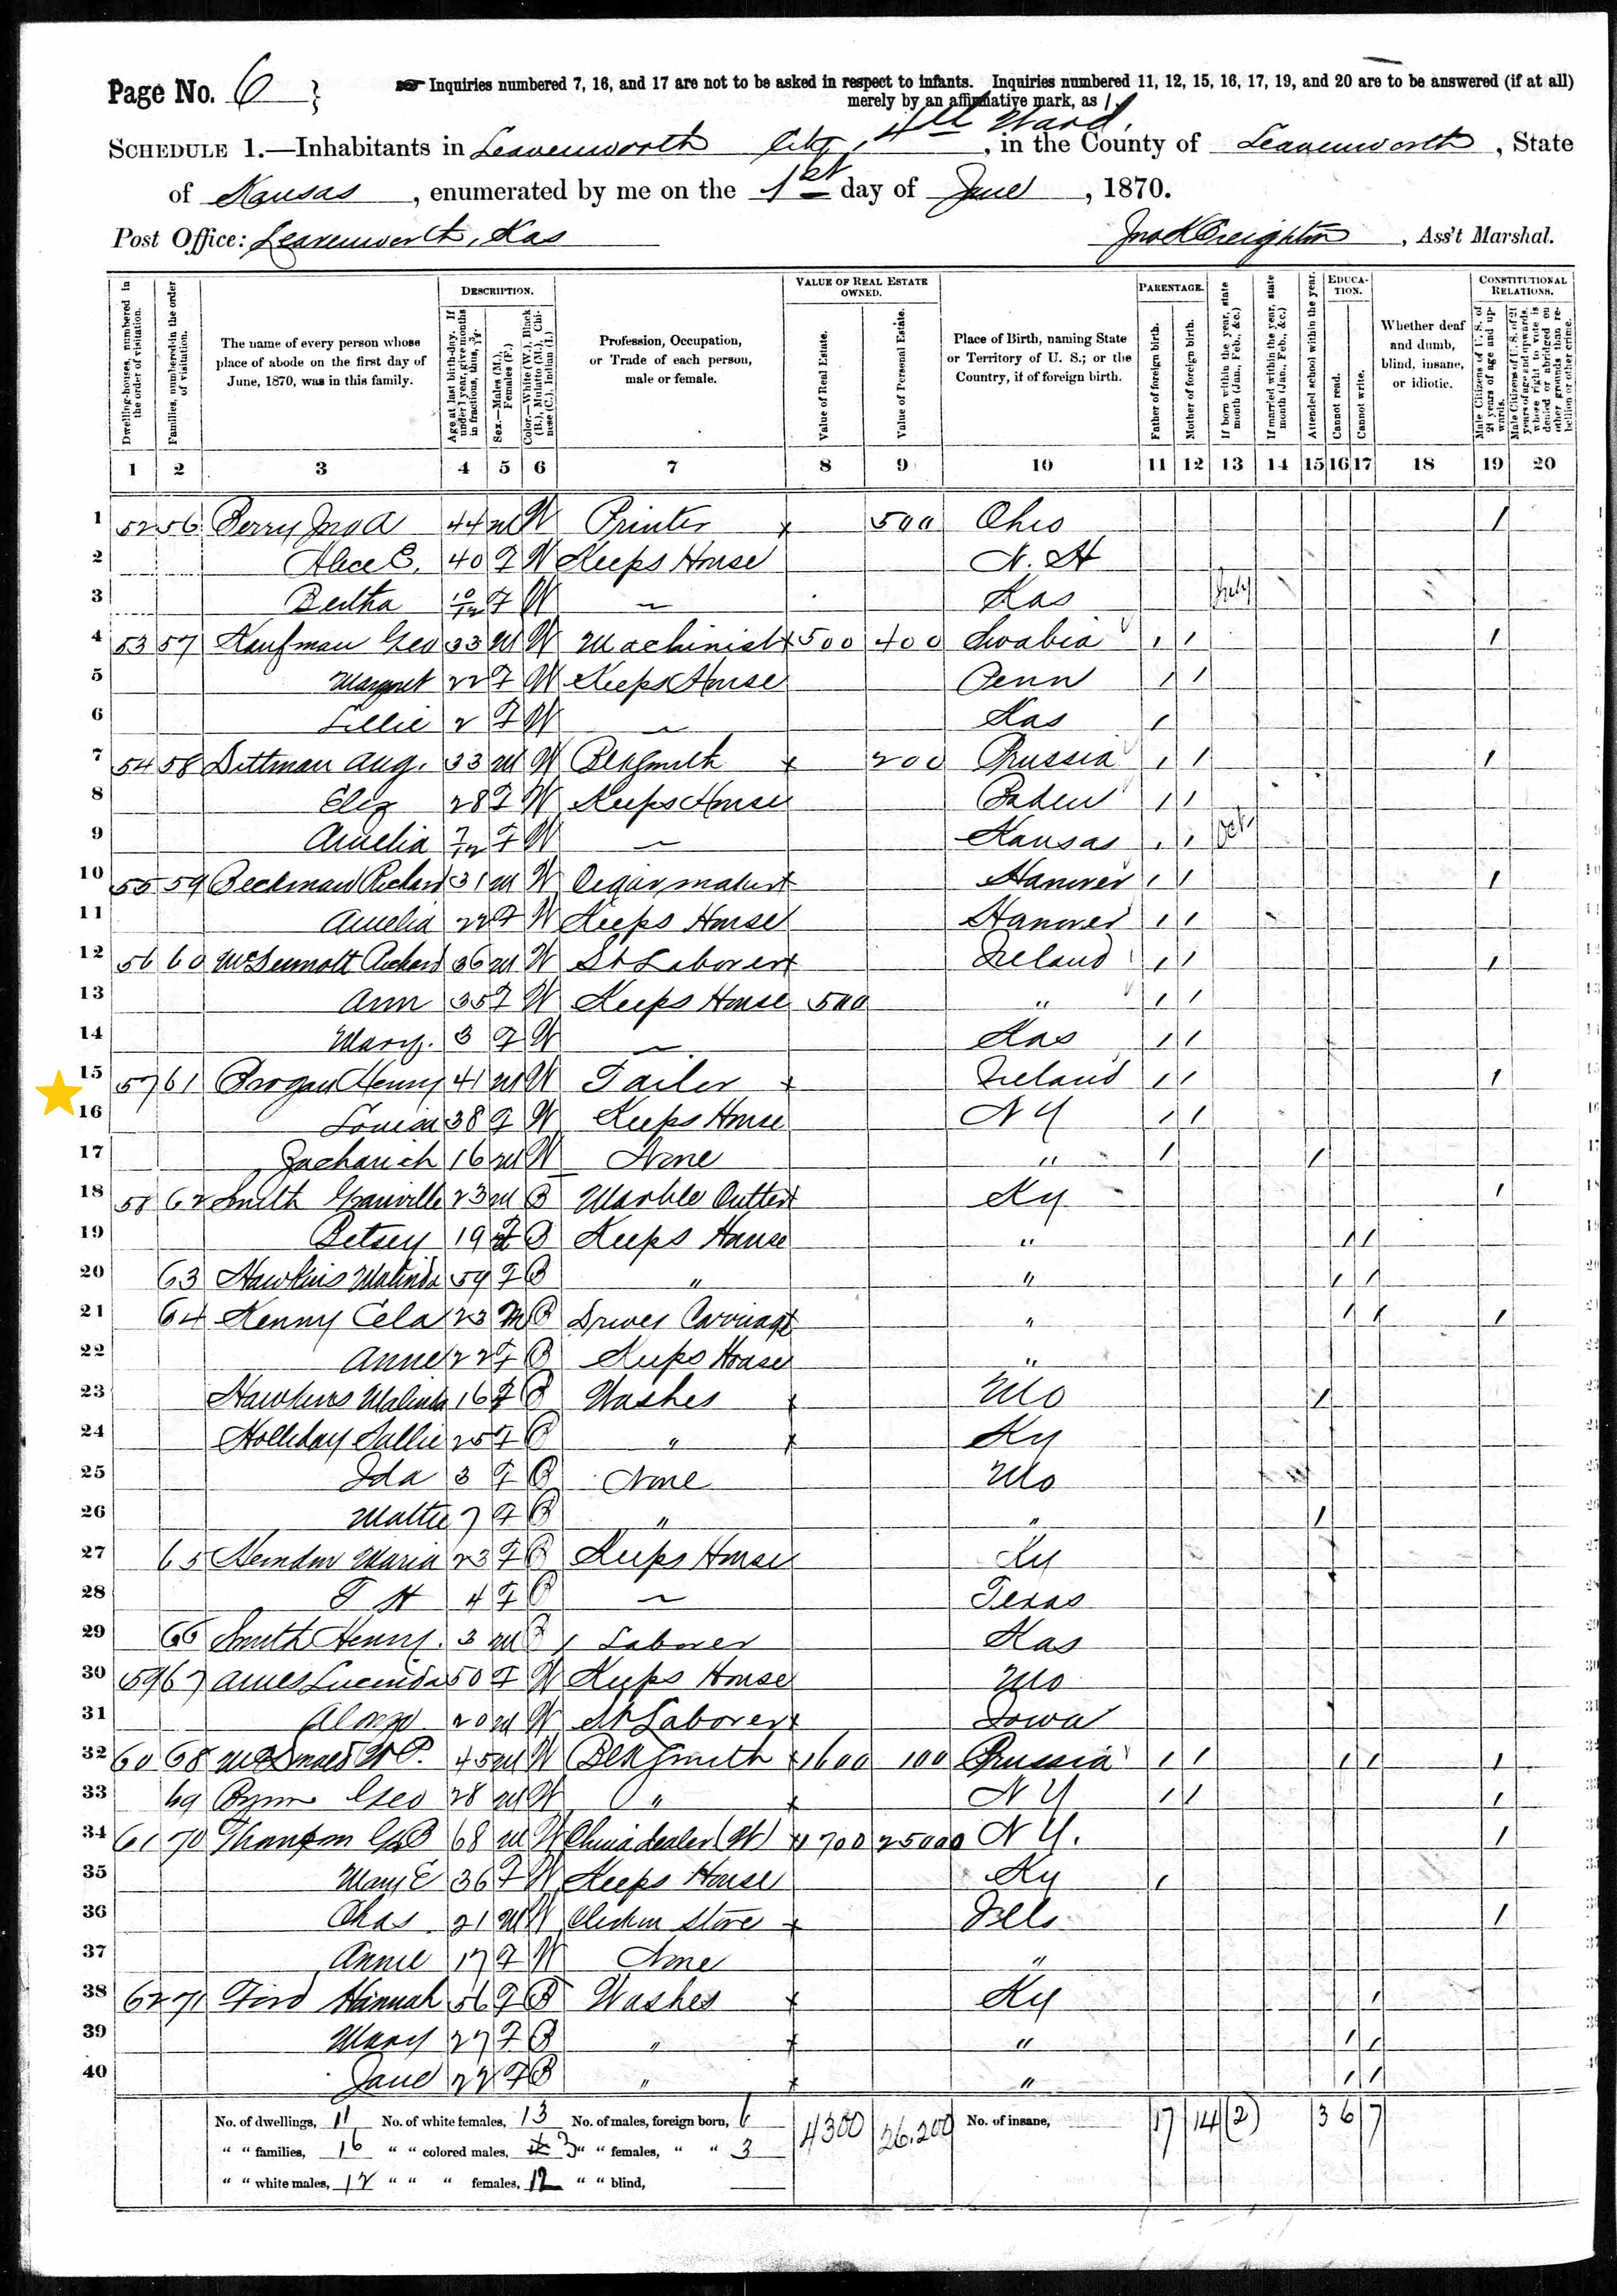 Page No. 6
Inquiries numbered 7, 16, and 17 are not to be asked in respect to infants. Inquiries numbered 11, 12, 15, 16, 17, 19, and 20 are to be answered (if at all)
merely by an affirmative mark, as /.
SCHEDULE 1.—Inhabitants in Leavenworth City, 4th Ward, in the County of Leavenworth, State
of Kansas, enumerated by me on the 1st day of June, 1870.
Post Office: Leavenworth, Kas
Jno K Creighton, Ass't Marshal.
Dwelling-houses, numbered in the order of visitation.
Families, numbered in the order of visitation.
The name of every person whose place of abode on the first day of June, 1870, was in this family.
DESCRIPTION.
Age at last birth-day. If under 1 year, give months in fractions, thus, 3/12.
Sex.—Males (M.), Females (F.)
Color.—White (W.), Black (B.), Mulatto (M.), Chinese (C.), Indian (I.)
Profession, Occupation, or Trade of each person, male or female.
VALUE OF REAL ESTATE OWNED.
Value of Real Estate.
Value of Personal Estate.
Place of Birth, naming State or Territory of U. S.; or the Country, if of foreign birth.
PARENTAGE.
Father of foreign birth.
Mother of foreign birth.
If born within the year, state month (Jan., Feb., &c.)
If married within the year, state month (Jan., Feb., &c.)
Attended school within the year.
EDUCATION.
Cannot read.
Cannot write.
Whether deaf and dumb, blind, insane, or idiotic.
CONSTITUTIONAL RELATIONS.
Male Citizens of U. S. of 21 years of age and upwards.
Male Citizens of U. S. of 21 years of age and upwards, whose right to vote is denied or abridged on other grounds than rebellion or other crime.
1 2 3 4 5 6 7 8 9 10 11 12 13 14 15 16 17 18 19 20
1 52 56 Perry Jno A 44 M W Printer x 500 Ohio /
2 Alice E. 40 F W Keeps House N. H
3 Bertha 10/12 F W — Kas July
4 53 57 Kaufman Geo 33 M W Machinist x 500 400 Swabia / / /
5 Margret 22 F W Keeps House Penn / /
6 Lillie 2 F W — Kas /
7 54 58 Dittman Aug. 33 M W Blksmith x 200 Prussia / / /
8 Eliz 28 F W Keeps House Baden / /
9 Amelia 7/12 F W — Kansas / / Oct.
10 55 59 Beckman Richard 31 M W Cigar maker x Hanover / / /
11 Amelia 22 F W Keeps House Hanover / /
12 56 60 McDermott Richard 36 M W St Laborer x Ireland / / /
13 Ann 35 F W Keeps House 500 " / /
14 Mary. 3 F W — Kas / /
15 57 61 Brogan Henry 41 M W Tailor x Ireland / / /
16 Louisa 38 F W Keeps House N Y / /
17 Zachariah 16 M W None " / /
18 58 62 Smith Granville 23 M B Marble Cutter x Ky /
19 Betsey 19 F B Keeps House " / /
20 63 Hawkins Malinda 59 F B " " / /
21 64 Kenny Cela 23 M B Drives Carriage " / / /
22 Anne 22 F B Keeps House "
23 Hawkins Malinda 16 F B Washes x Mo /
24 Holliday Sallie 25 F B " x Ky
25 Ida 3 F B None Mo
26 Mattie 7 F B " " /
27 65 Herndon Maria 23 F B Keeps House Ky
28 T H 4 F B — Texas
29 66 Smith Henry. 3 M B / Laborer Kas
30 59 67 Ames Lucinda 50 F W Keeps House Mo
31 Alonzo 20 M W St Laborer x Iowa
32 60 68 W P. 45 M W Blksmith x 1600 100 Prussia / / / / /
33 69 Geo 28 M W " x N Y / / /
34 61 70 68 M W China dealer (W) x 1700 25000 N Y. /
35 Mary E 36 F W Keeps House Ky /
36 Chas 21 M W Clerk in Store x Ills /
37 Annie 17 F W None "
38 62 71 Ford Hannah 56 F B Washes x Ky /
39 Mary 27 F B " x " / /
40 Jane 22 F B " x " / /
No. of dwellings, 11 No. of white females, 13 No. of males, foreign born, 6 4300 26.200 No. of insane, 17 14 (2) 3 6 7
" " families, 16 " " colored males, 3 " " females, " " 3
" " white males, 12 " " " females, 12 " " blind,